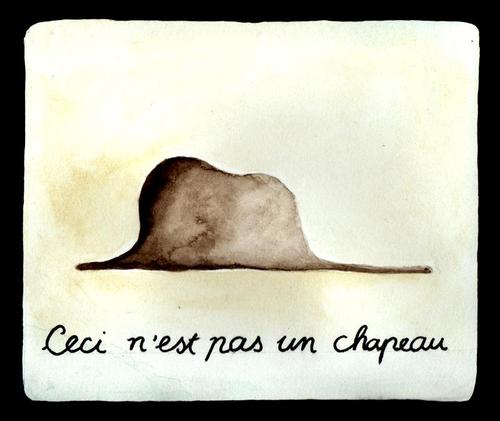 Ceci n'est pas un chapeau